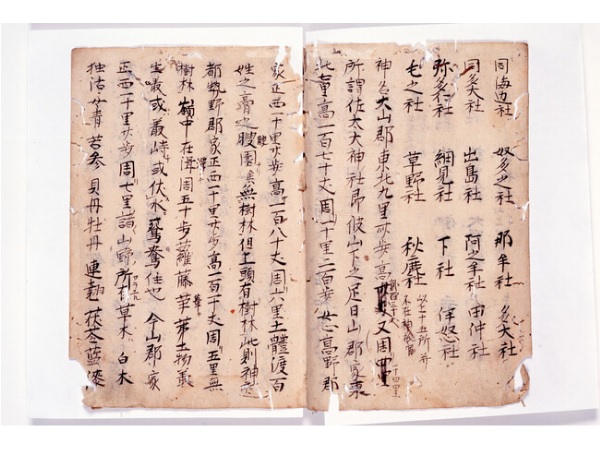 同海边社 奴多之社 那牟社 多太社
同多太社 出島社 阿之牟社 田仲社
弥多社 細見社 下社 伴怒社
毛之社 草野社 秋鹿社
神名火山郡東北九里卌歩高 丈又周四里
所謂佐太大神社即彼山下之足日山郡家東
北七里高一百七十丈周一十里二百歩女心高野郡
家正西一十里廿歩高一百八十丈周六里土體渡百
姓之膏腴園矣無樹林但上頭有樹林此則神
都勢野郡家正西一十里廿歩高一百一十丈周五里無
樹林嶺中在濱周五十歩蘿藤荻葦茅土物叢
生或叢峙或伏水鴛鴦住也今山郡家
正西一十里廿歩周七里諸山野所有草木白木
独活女青苦参貝丹牡丹連翹茯苓藍漆